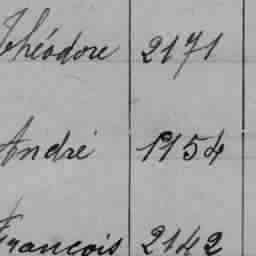 Théodore 2171
André 1954
François 2142